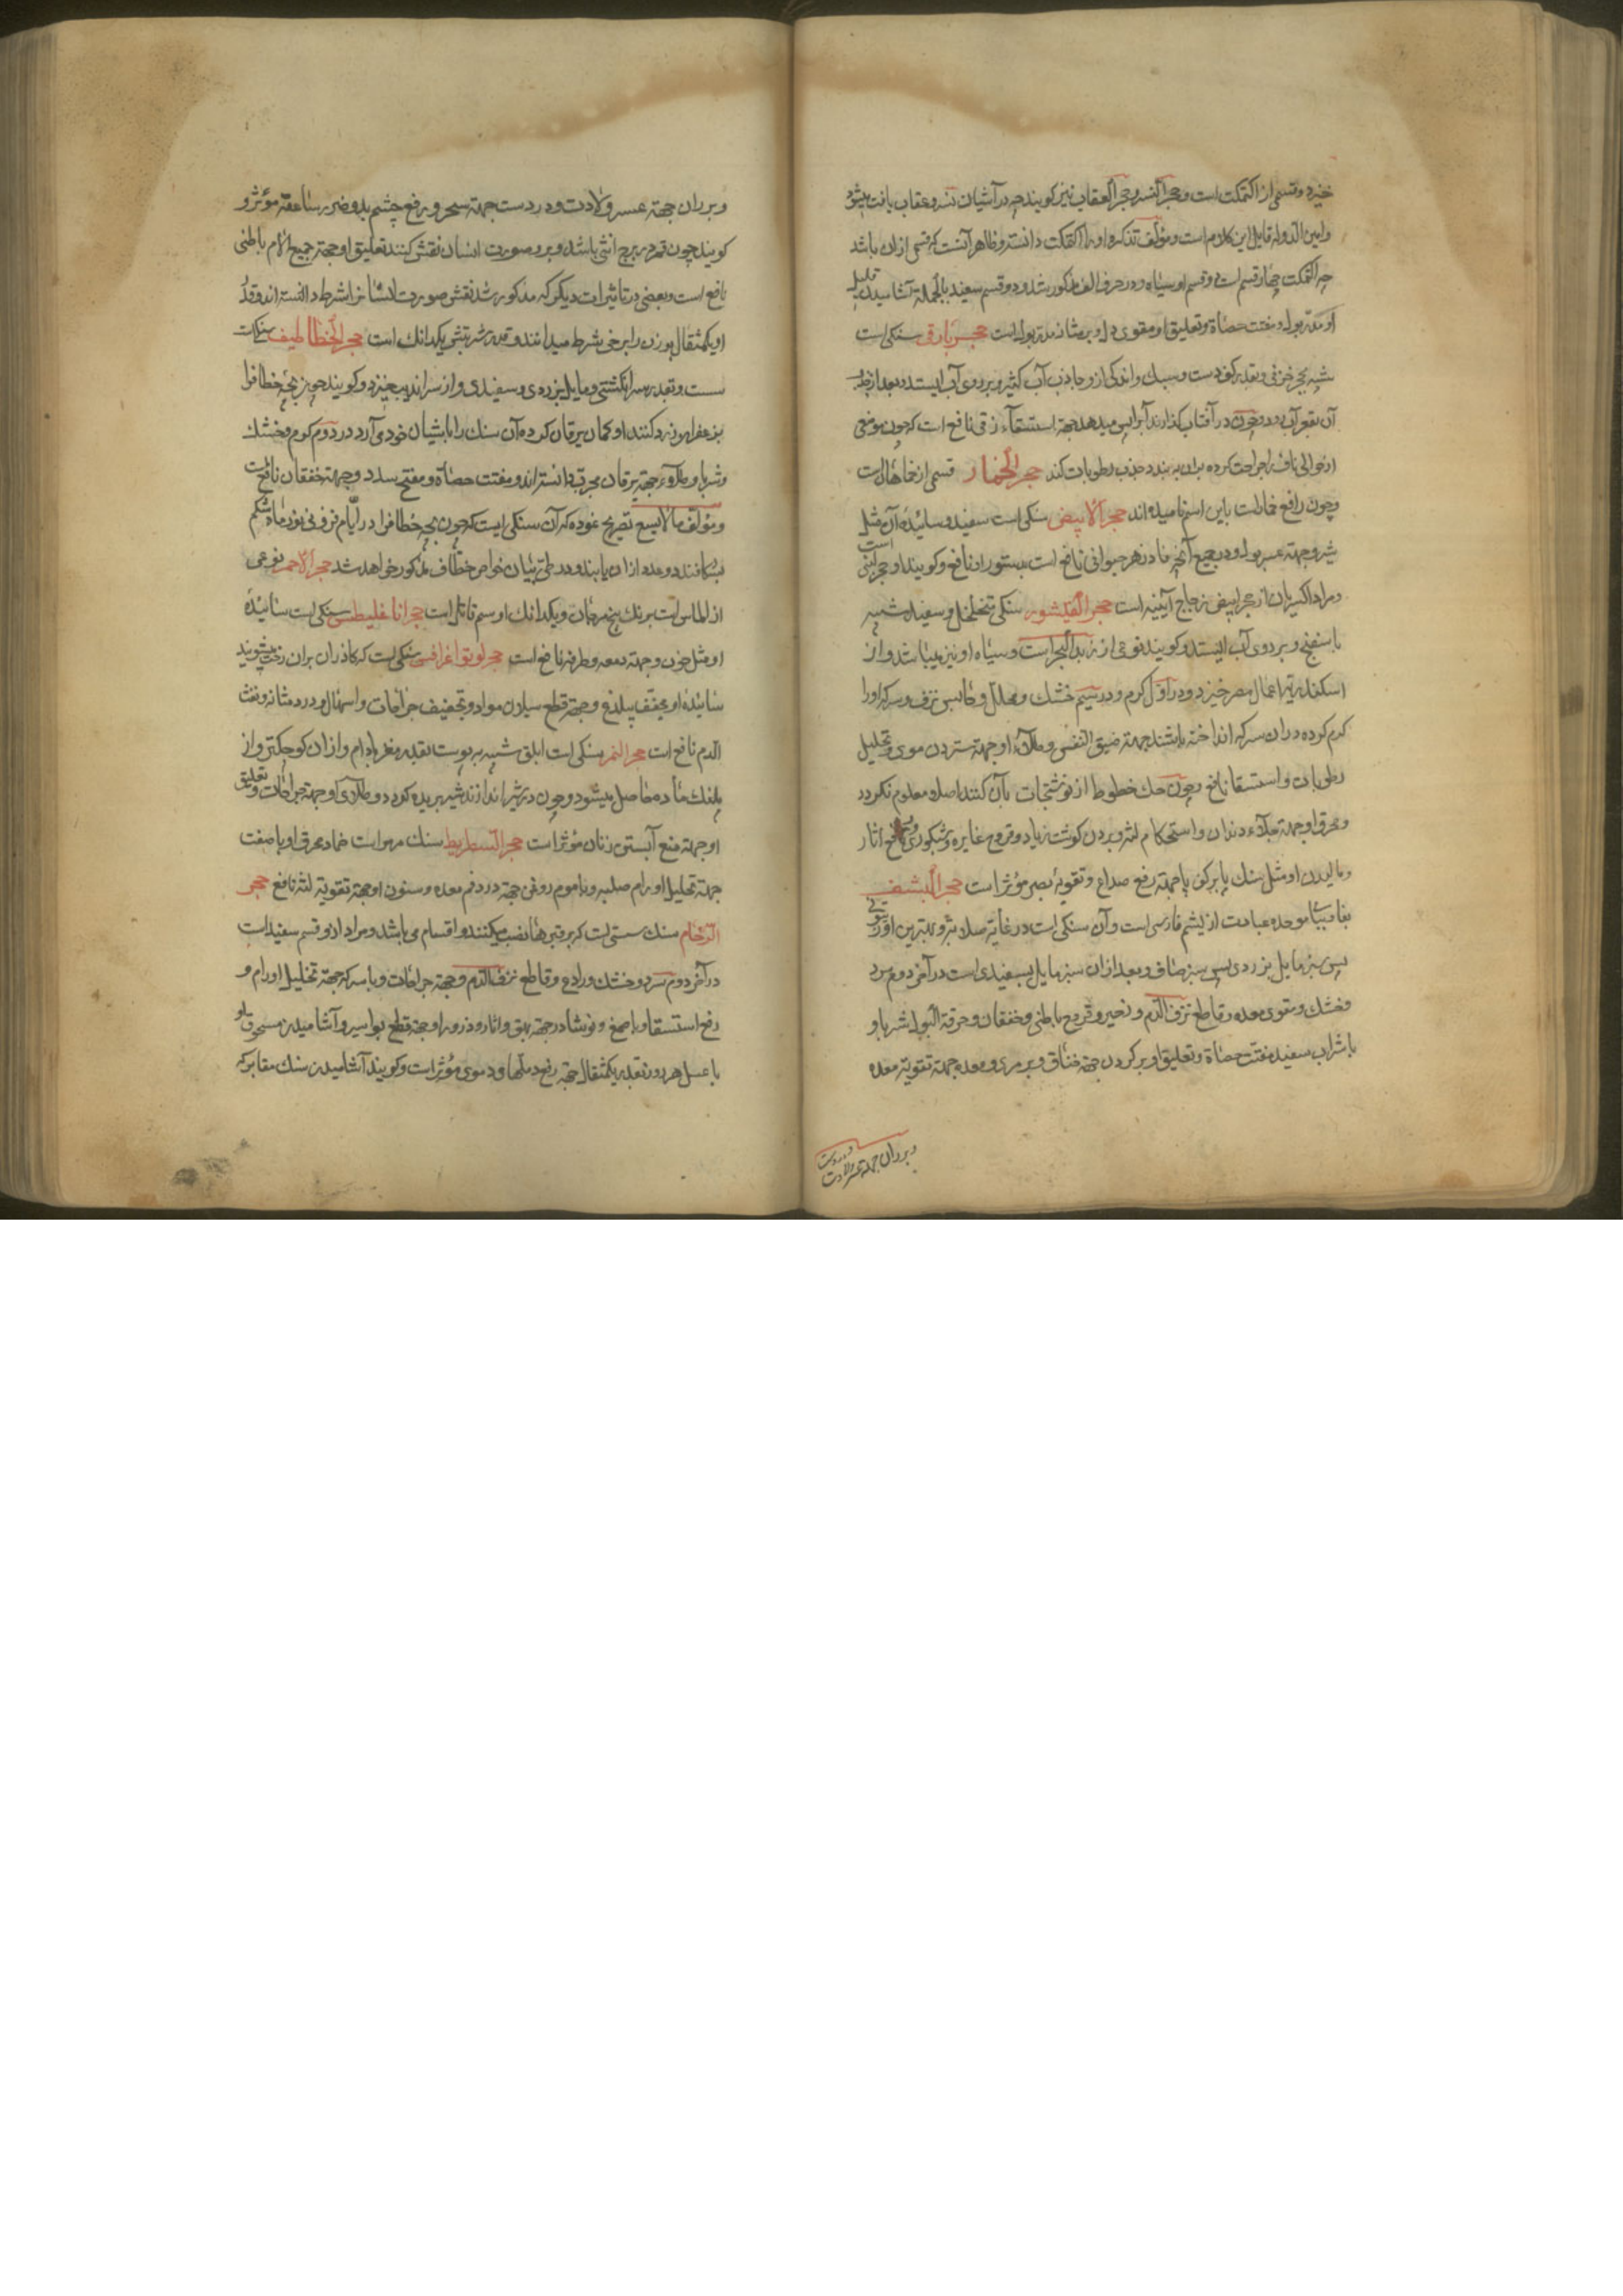 خیزد و قسمی از اکتمکت است و حجر النسر و حجر العقاب نیز کویند چه در آشیان نسر و عقاب یافت میشود
و امین الدوله قایل این کلام است و مؤلف تذکره او را اکتمکت دانسته و ظاهر آنست که قسمی از ان باشد
چه اکتمکت چهار قسم است دو قسم او سیاه و در حرف الف مذکور شد و دو قسم سفید بالجمله آشامیدن قلیل
او مدر بول و مفتت حصاة و تعلیق او مقوی دل و بر مثانه مدر بول است حجر بارقی سنکی است
شبیه بحجر خزفی و بقدر کف دست و سبک و اندکی از و جاذب آب کثیر و بر روی آب ایستد و بعد از جذب
آن بقعر آب رود و چون در آفتاب کذارند آب را پس میدهد جهة استسقاء زقی نافع است که چون موضعی
از حوالی ناف را جراحت کرده بران به بندد جذب رطوبات کند حجر الخمار قسمی از خماهان است
و چون رافع خمار است باین اسم نامیده اند حجر الابیض سنکی است سفید و سائیده آن مثل
شیر و جهة عسر بول و در جمیع آنچه فادزهر حیوانی نافع است بدستور او نافع و کویند او حجر لبنی است
و مراد اکسیریان از حجر ابیض زجاج آبینه است حجر القیشور سنکی متخلخل و سفید و شبیه
باسفنج و بر روی آب ایستد و کویند نوعی از زبد البحر است و سیاه او نیز میباشد و از
اسکندریه اعمال مصر خیزد و در اوّل کرم و در سیم خشک و محلل و حابس نزف و سرکه او را
کرم کرده در ان سرکه انداخته باشند جهة ضیق النفس و طلاء او جهة ستردن موی و تحلیل
رطوبات و استسقا نافع و چون حک خطوط از نوشتجات بآن کنند اصلا معلوم نکردد
و محرق او جهة جلاء دندان و استحکام لثه و بردن کوشت زیاد و قروح غایره و شبکوری و رفع اثار
و مالیدن او مثل سنک پا بر کف پا جهة رفع صداع و تقویة بصر مؤثر است حجر البشف
بفا و ببا موحده عبارت از یشم فارسی است و آن سنکی است در غایة صلابة و بهترین او زیتونی
پس سبز مایل بزردی پس سبز صاف و بعد از ان سبز مایل بسفیدی است در آخر دوم سرد
و خشک و مقوی معده و قاطع نزف الدم و زحیر و قروح باطنی و خفقان و حرقة البول شربا و
با شراب سفید مفتت حصاة و تعلیق او بر کردن جهة خناق و بر مری و معده جهة تقویة معده
و بر ران جهة عسر ولادت و در دست
و بر ران جهة عسر ولادت و در دست جهة سحر و رفع چشم بد و ضرر صاعقه مؤثر و
کویند چون قمر در برج انثی باشد و بر و صورت انسان نقش کنند تعلیق او جهة جمیع الام باطنی
نافع است و بعضی در تاثیرات دیکر که مذکور شد نقش صورت انسان را شرط دانسته اند و قدر
او یکمثقال بوزن را برخی شرط میدانند و قدر شربتش یکدانک است حجر الخطاطیف سنکی است
سست و بقدر سر انکشتی و مایل بزردی و سفیدی و از سراندیب خیزد و کویند چون بچهٔ خطاف را
بزعفران زرد کنند او کمان یرقان کرده آن سنک را باشیان خود می آرد در دوم کرم و خشک
و شربا و طلاءً جهة یرقان مجرب دانسته اند و مفتت حصاة و مفتح سدد و جهة خفقان نافع است
و مؤلف مالایسع تصریح نموده که آن سنکی است که چون بچه خطاف را در ایّام فزونی نور ماه شکم
بشکافند دو عدد از ان یابند و در طیّ بیان خواص خطاف مذکور خواهد شد حجر الاحمر نوعی
از الماس است برنک بیخ مرجان و یکدانک او سم قاتل است حجر اناغلیطس سنکی است سائیدهٔ
او مثل خون و جهة دمعه و طرفه نافع است حجر لوتواغرافس سنکی است که کاذران بران رخت میشویند
سائیده او مجفف بیلذع و جهة قطع سیلان مواد و تجفیف جراحات و اسهال و درد مثانه و نفث
الدم نافع است حجر النمر سنکی است ابلق شبیه به پوست بقدر مغز بادام و از ان کوچکتر و از
پلنک ماده حاصل میشود و چون در شیر اندازند شیر بریده کردد و طلای او جهة جراحات و تعلیق
او جهة منع آبستنی زنان مؤثر است حجر السطریط سنک مهر است ضماد محرق او با صفت
جهة تحلیل اورام صلبه و با موم روغن جهة درد فم معده و سنون او جهة تقویة لثه نافع حجر
الرخام سنک سستی است که بر قبرها نصب میکنند و اقسام می باشد و مراد از و قسم سفید است
در آخر دوم سرد و خشک و رادع و قاطع نزف الدم و جهة جراحات و با سرکه جهة تحلیل اورام و
رفع استسقا و با صمغ و نوشادر جهة بهق و اثار و ذرور او جهة قطع بواسیر و آشامیدن مسحوق او
با عسل هر روز بقدر یکمثقال جهة رفع دملها و دموی مؤثر است و کویند آشامیدن سنک مقابر که